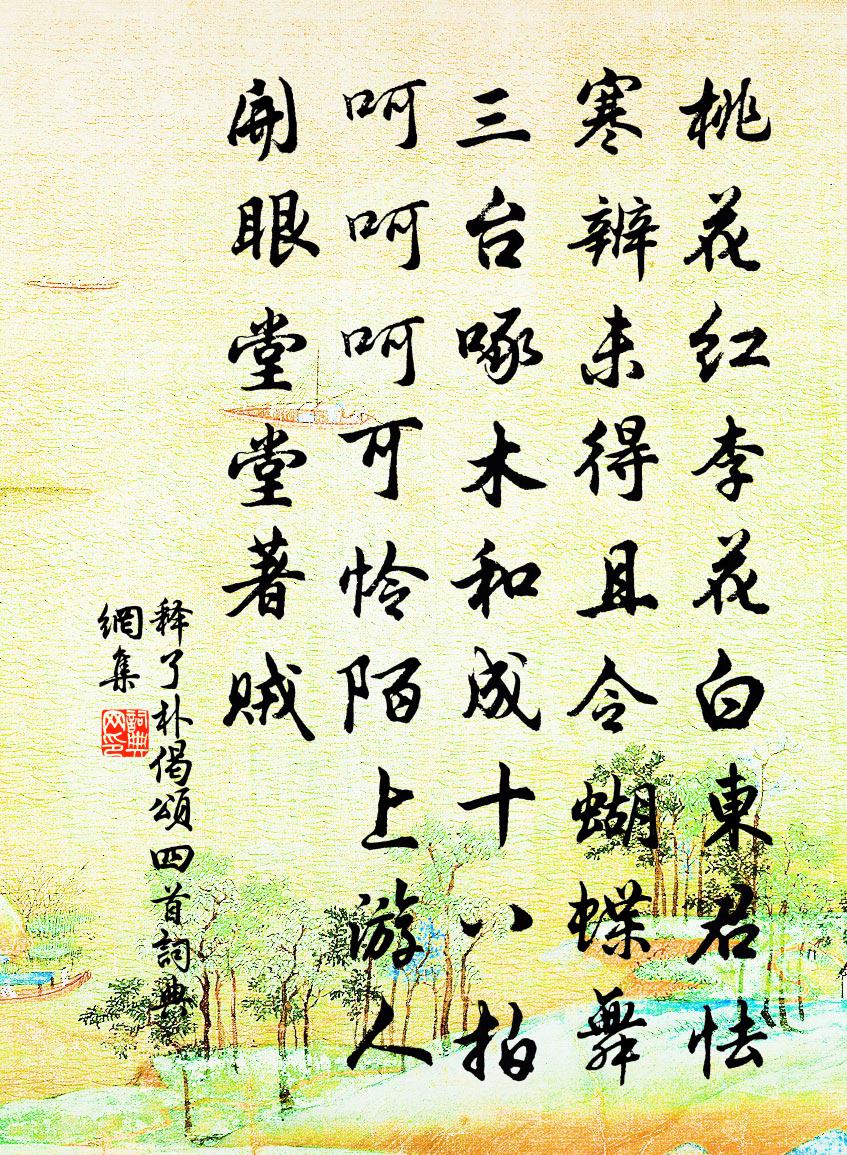 桃花红李花白東君怯
寒辨未得且令蝴蝶舞
三台啄木和成十八拍
呵呵呵可怜陌上游人
開眼堂堂著贼
释了朴偈頌四首詞典
網集
詞典網印